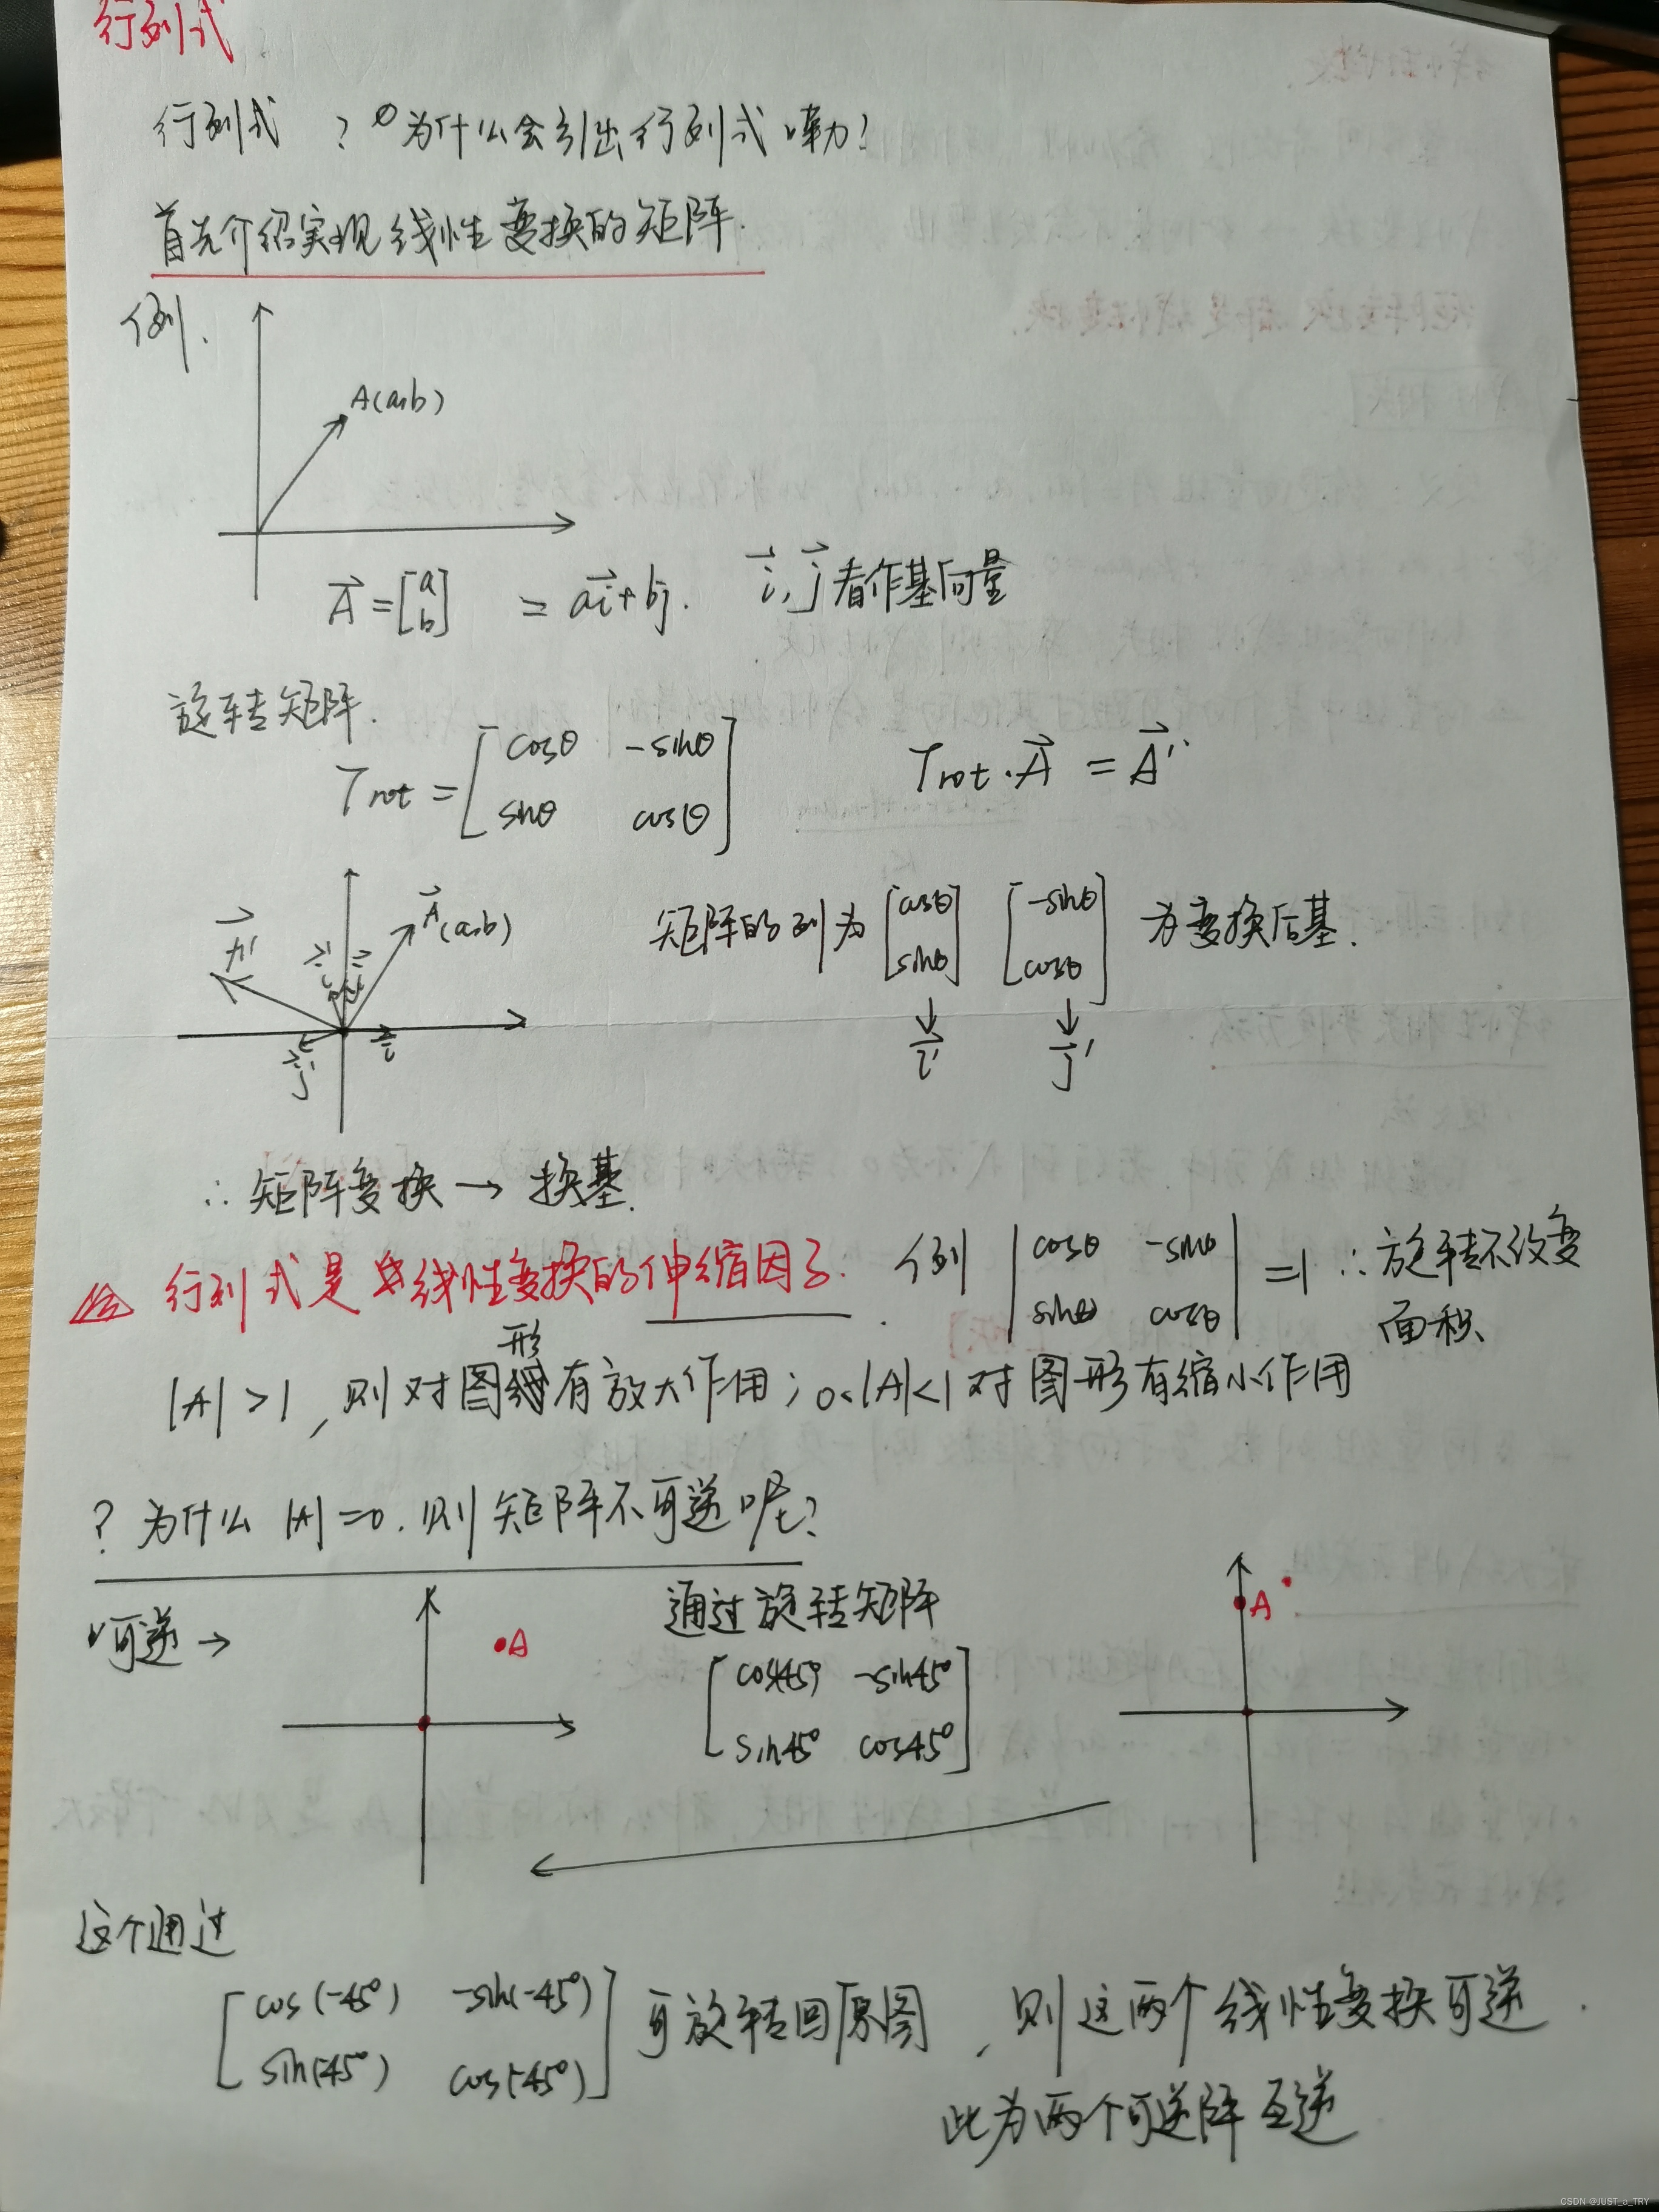 行列式
行列式 ? 为什么会引出行列式嘞?
首先介绍实现线性变换的矩阵.
例.
A(a,b)
A⃗ = [a b] = ai⃗+bj⃗. i⃗, j⃗ 看作基向量
旋转矩阵.
Trot = [cosθ -sinθ
sinθ cosθ]
Trot·A⃗ = A⃗'
A⃗(a,b)
A⃗'
i⃗'
i⃗
j⃗'
矩阵的列为 [cosθ sinθ] [-sinθ cosθ] 为变换后基.
↓ ↓
i⃗' j⃗'
∴ 矩阵变换 → 换基.
行列式是线性变换的伸缩因子. 例 |cosθ -sinθ
sinθ cosθ| =1 ∴旋转不改变
面积
|A|>1, 则对图形有放大作用; 0<|A|<1对图形有缩小作用
? 为什么 |A|=0. 则矩阵不可逆呢?
可逆→
A
通过旋转矩阵
[cos45° -sin45°
sin45° cos45°]
A
这个通过
[cos(-45°) -sin(-45°)
sin(-45°) cos(-45°)] 可旋转回原图, 则这两个线性变换可逆.
此为两个可逆阵互逆
CSDN @JUST_a_TRY